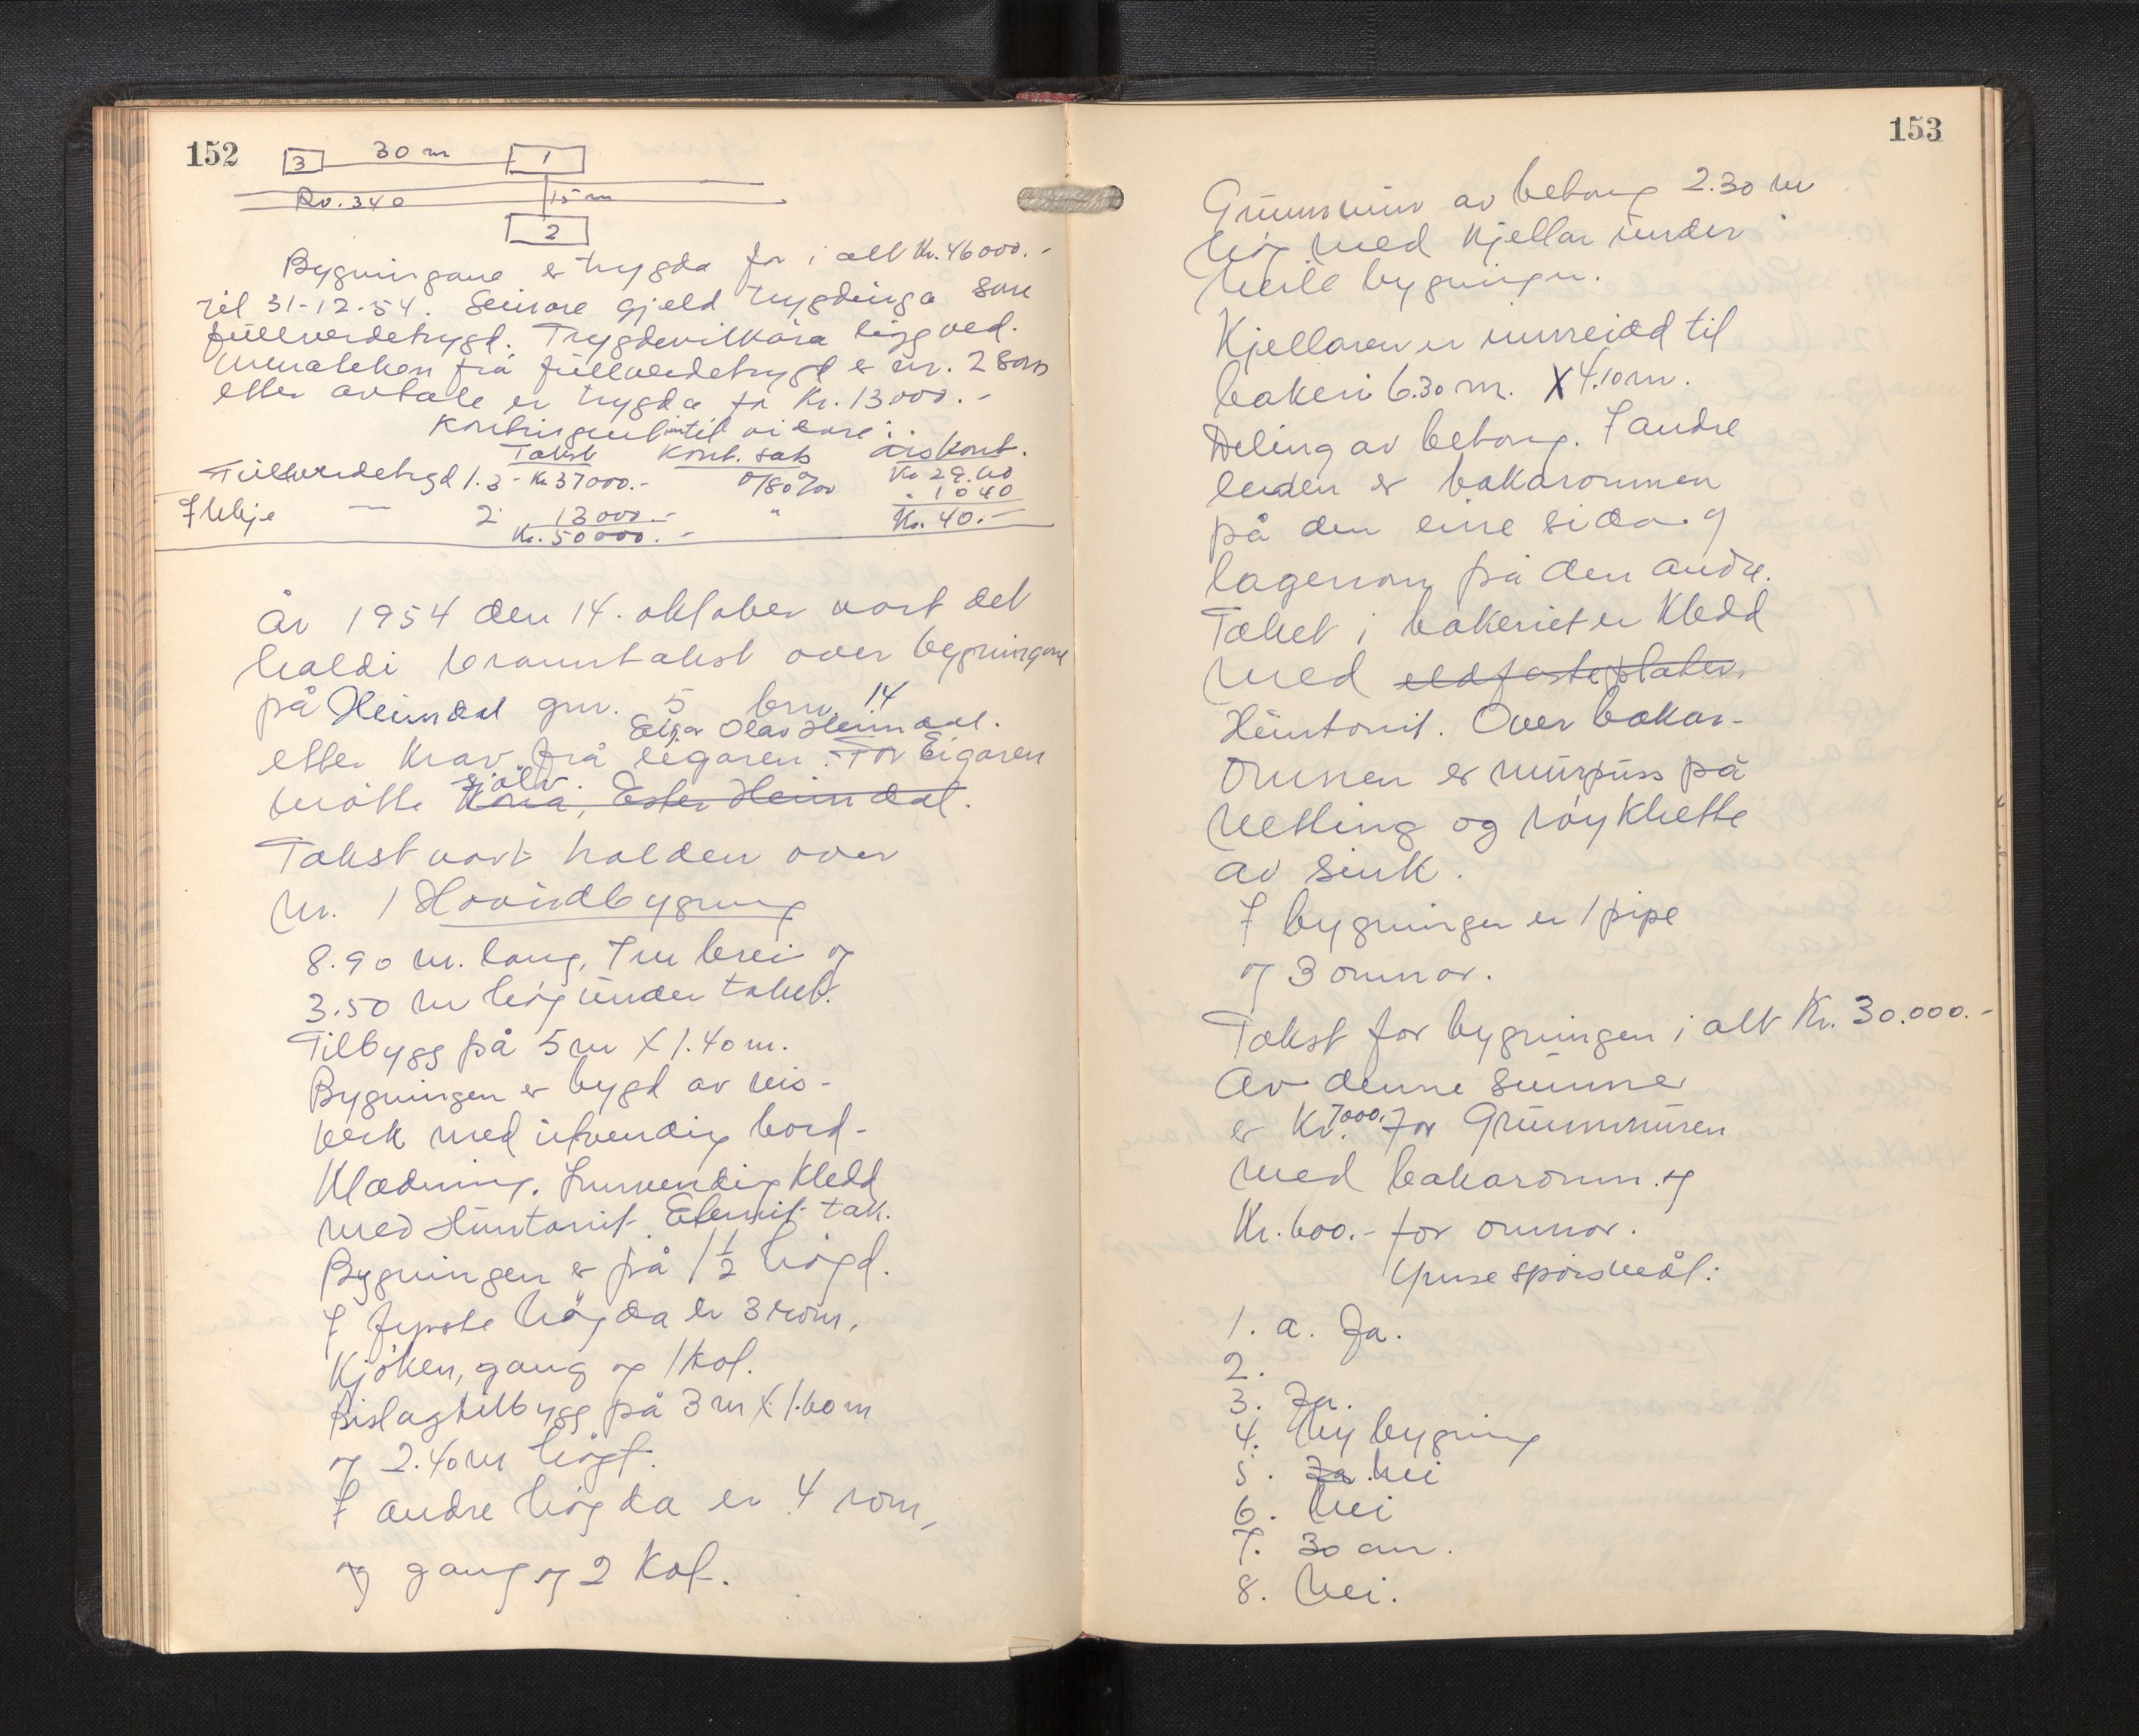 152
3 30 m 1
Rv. 340 15 m
2
Bygningane er trygda for i alt Kr. 46000.-
til 31-12-54. Seinare gjeld trygdinga som
fullverdetrygd. Trygdevilkåra ligg ved.
Unnateken frå fullverdetrygd er nr. 2 som
etter avtale er trygda for Kr. 13000.-
Kontingent inntil vidare:
Takst Kont. sats årskont.
Fullverdetrygd 1.3 - Kr. 37000.- 0/80 %oo Kr 29.60
Ikkje — 2 13000.- " " 1040
Kr. 50000.- Kr. 40.-
År 1954 den 14. oktober vart det
haldi branntakst over bygningane
på Heimdal gnr. 5 bnr. 14
Eigar Olav Heimdal.
etter krav frå eigaren. For Eigaren
sjølv.
møtte Kona, Ester Heimdal.
Takst vart halden over
Nr. 1 Hovudbygning
8.90 m. lang, 7 m brei og
3.50 m høg under taket.
Tilbygg på 5 m X 1.40 m.
Bygningen er bygd av reis-
verk med utvendig bord-
klædning. Innvendig kledd
med Huntonit. Eternit tak.
Bygningen er på 1 1/2 høgd.
I fyrste høgda er 3 rom,
Kjøken, gang og 1 kot.
Bislagtilbygg på 3 m X 1.60 m
og 2.40 m høgt.
I andre høgda er 4 rom,
og gang og 2 Kot.
153
Grunnmur av betong 2.30 m
høg med Kjellar under
heile bygningen.
Kjellaren er innreidd til
bakeri 6.30 m. X 4.10 m.
Deling av betong. I andre
enden er bakaromnen
på den eine sida og
lagerrom på den andre.
Taket i bakeriet er kledd
med eldfaste plater.
Huntonit. Over bakar-
omnen er murpuss på
netting og røykhette
av sink.
I bygningen er 1 pipe
og 3 omnar.
Takst for bygningen i alt Kr. 30.000.-
Av denne summen
er Kr. 7000. for Grunnmuren
med bakaromn. og
Kr. 600.- for omnar.
Ymse spørsmål:
1. a. Ja.
2.
3. Ja.
4. Ny bygning
5. Ja. Nei
6. Nei
7. 30 cm.
8. Nei.